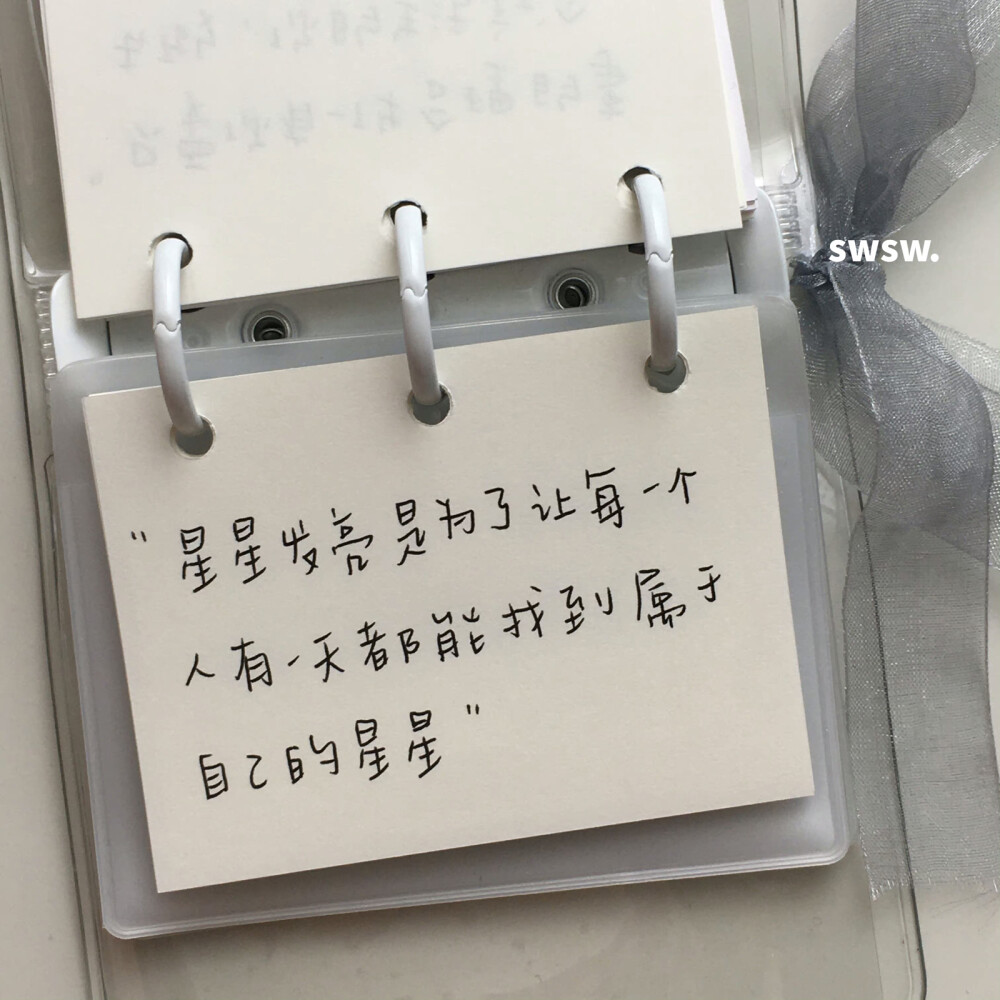 SWSW.
"星星发亮是为了让每一个
人有一天都能找到属于
自己的星星"